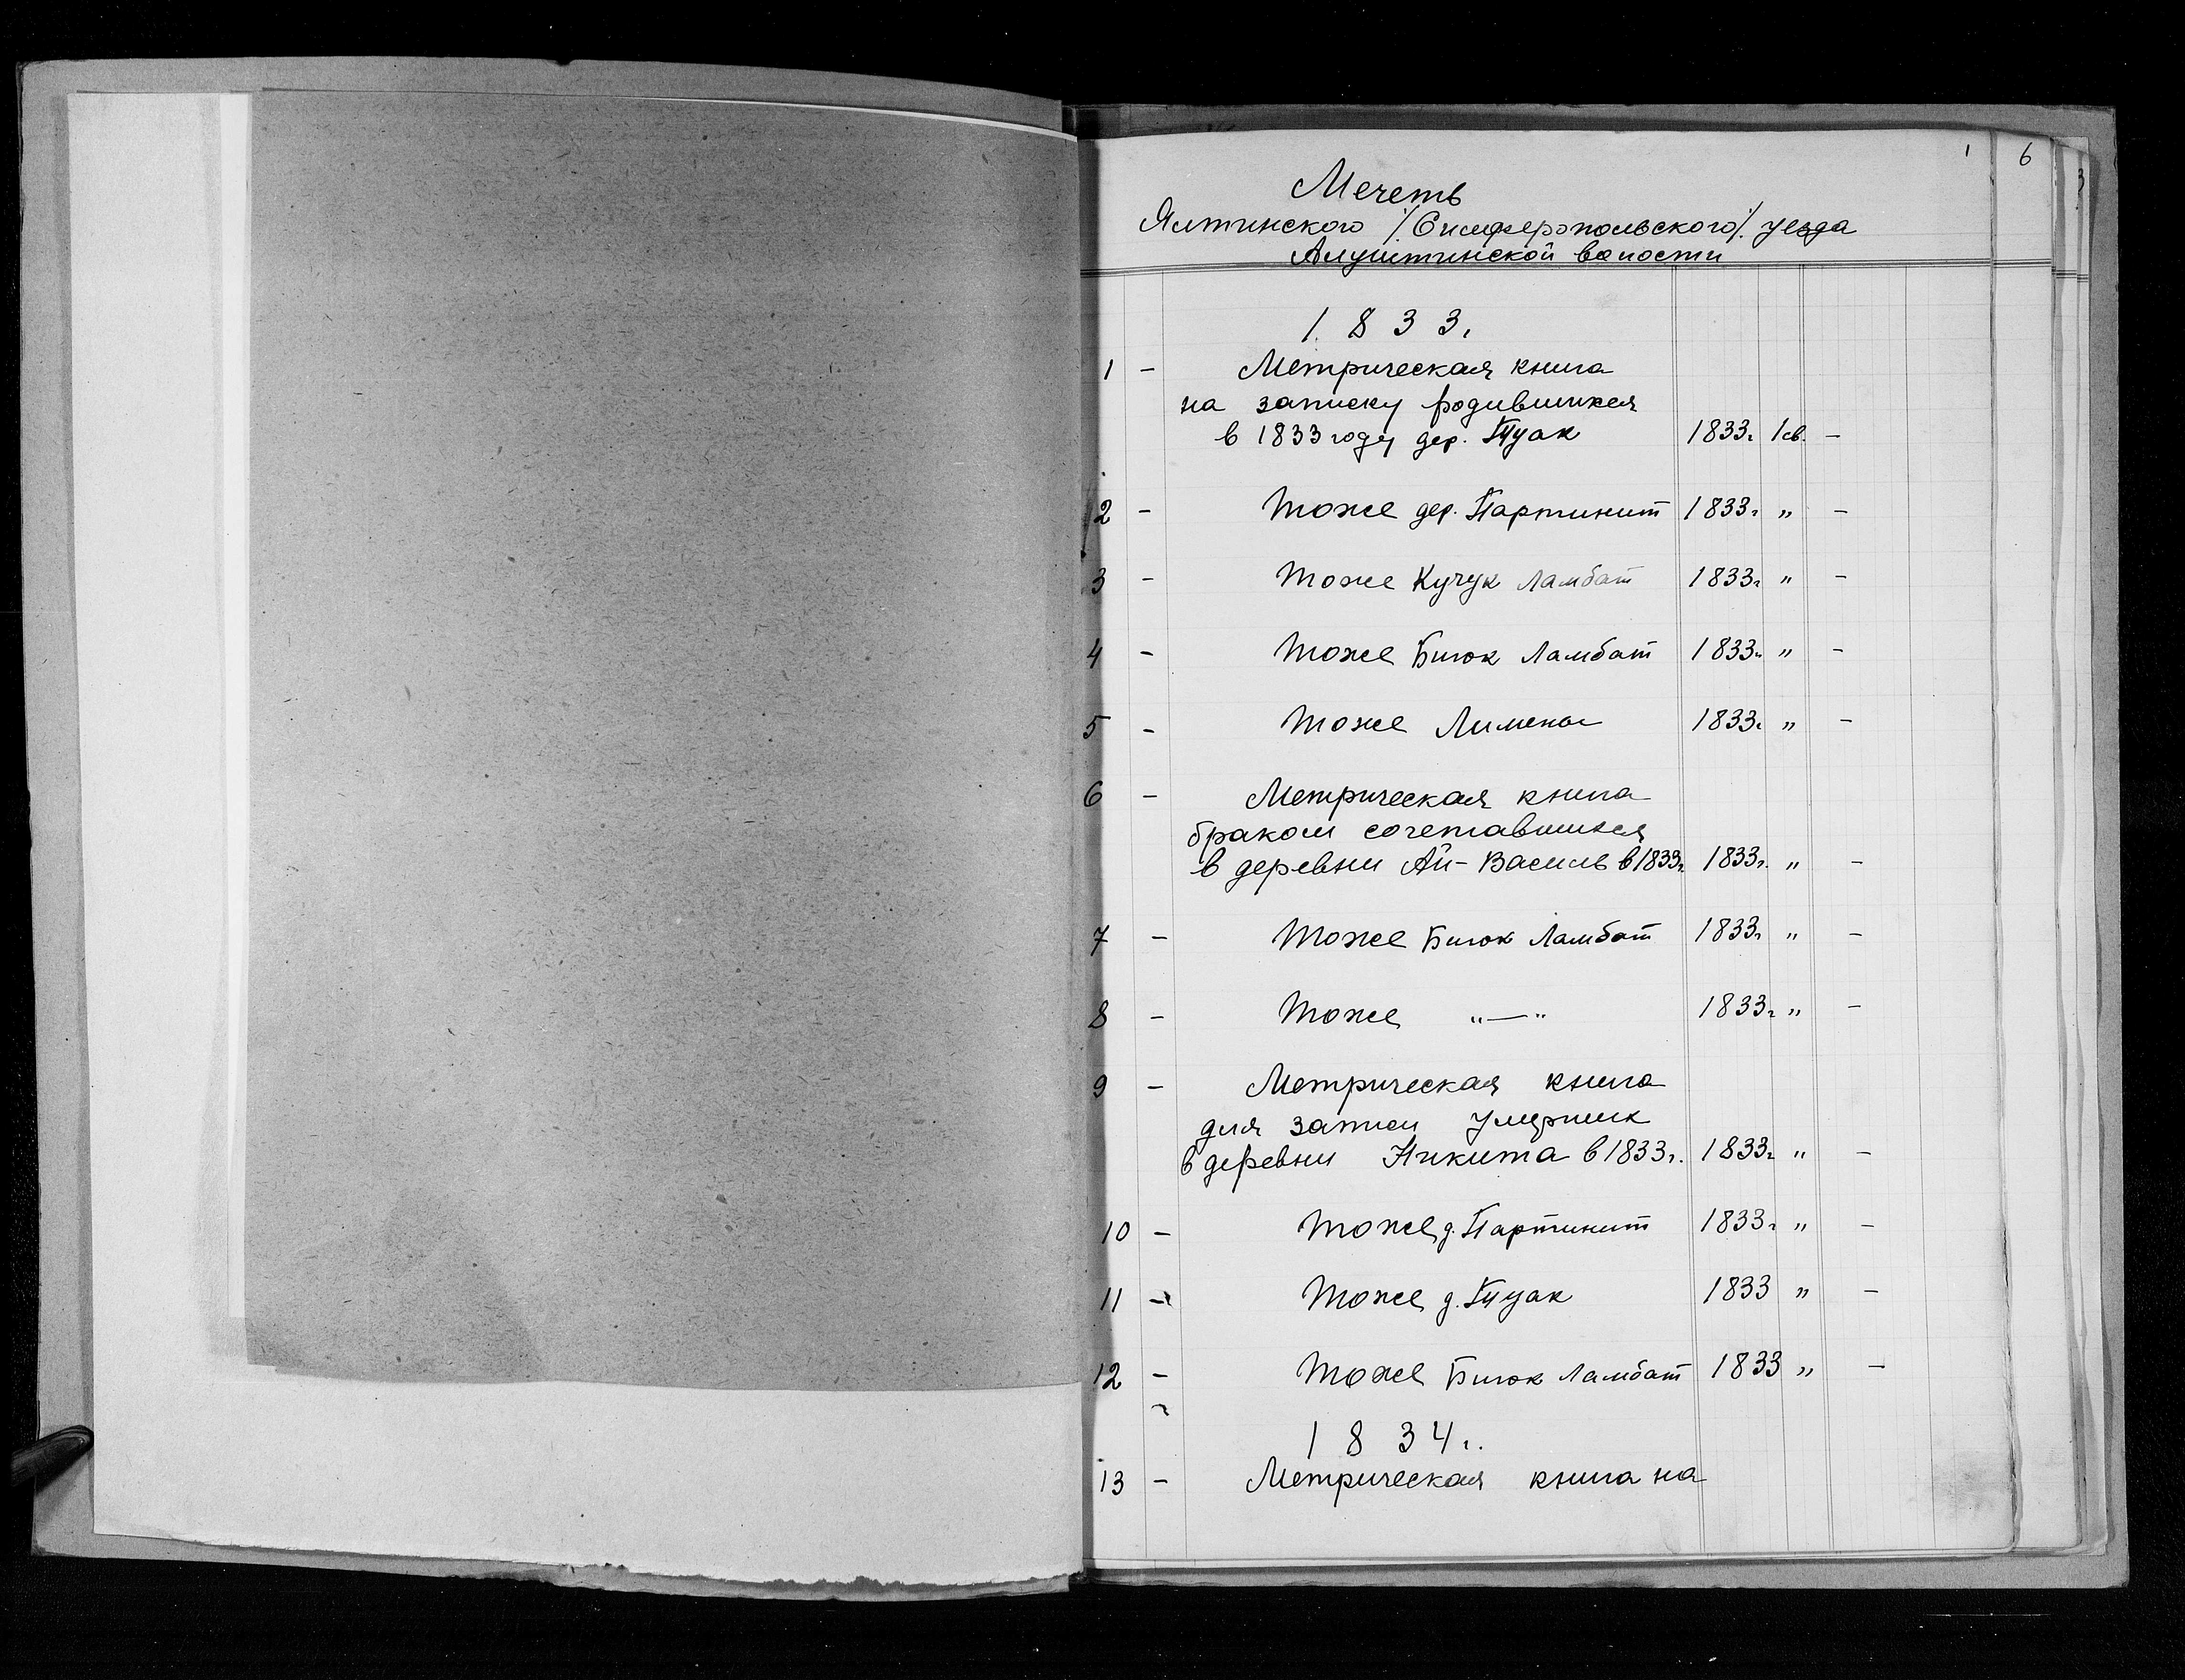 1
6
3
Мечеть
Ялтинского /Симферопольского/ уезда
Алуштинской волости
1833г.
1 - Метрическая книга
на записку родившихся
в 1833 году дер. Туак 1833г. 1св. -
2 - Тоже дер. Партинит 1833г. " -
3 - Тоже Кучук Ламбат 1833г. " -
4 - Тоже Биюк Ламбат 1833г. " -
5 - Тоже Лимена 1833г. " -
6 - Метрическая книга
браком сочетавшихся
в деревни Ай-Василь в 1833г. 1833г. " -
7 - Тоже Биюк Ламбат 1833г. " -
8 - Тоже "—" 1833г. " -
9 - Метрическая книга
для записи умерших
в деревни Никита в 1833г. 1833г. " -
10 - Тоже д. Партинит 1833г. " -
11 - Тоже д. Туак 1833 " -
12 - Тоже Биюк Ламбат 1833 " -
1834г.
13 - Метрическая книга на